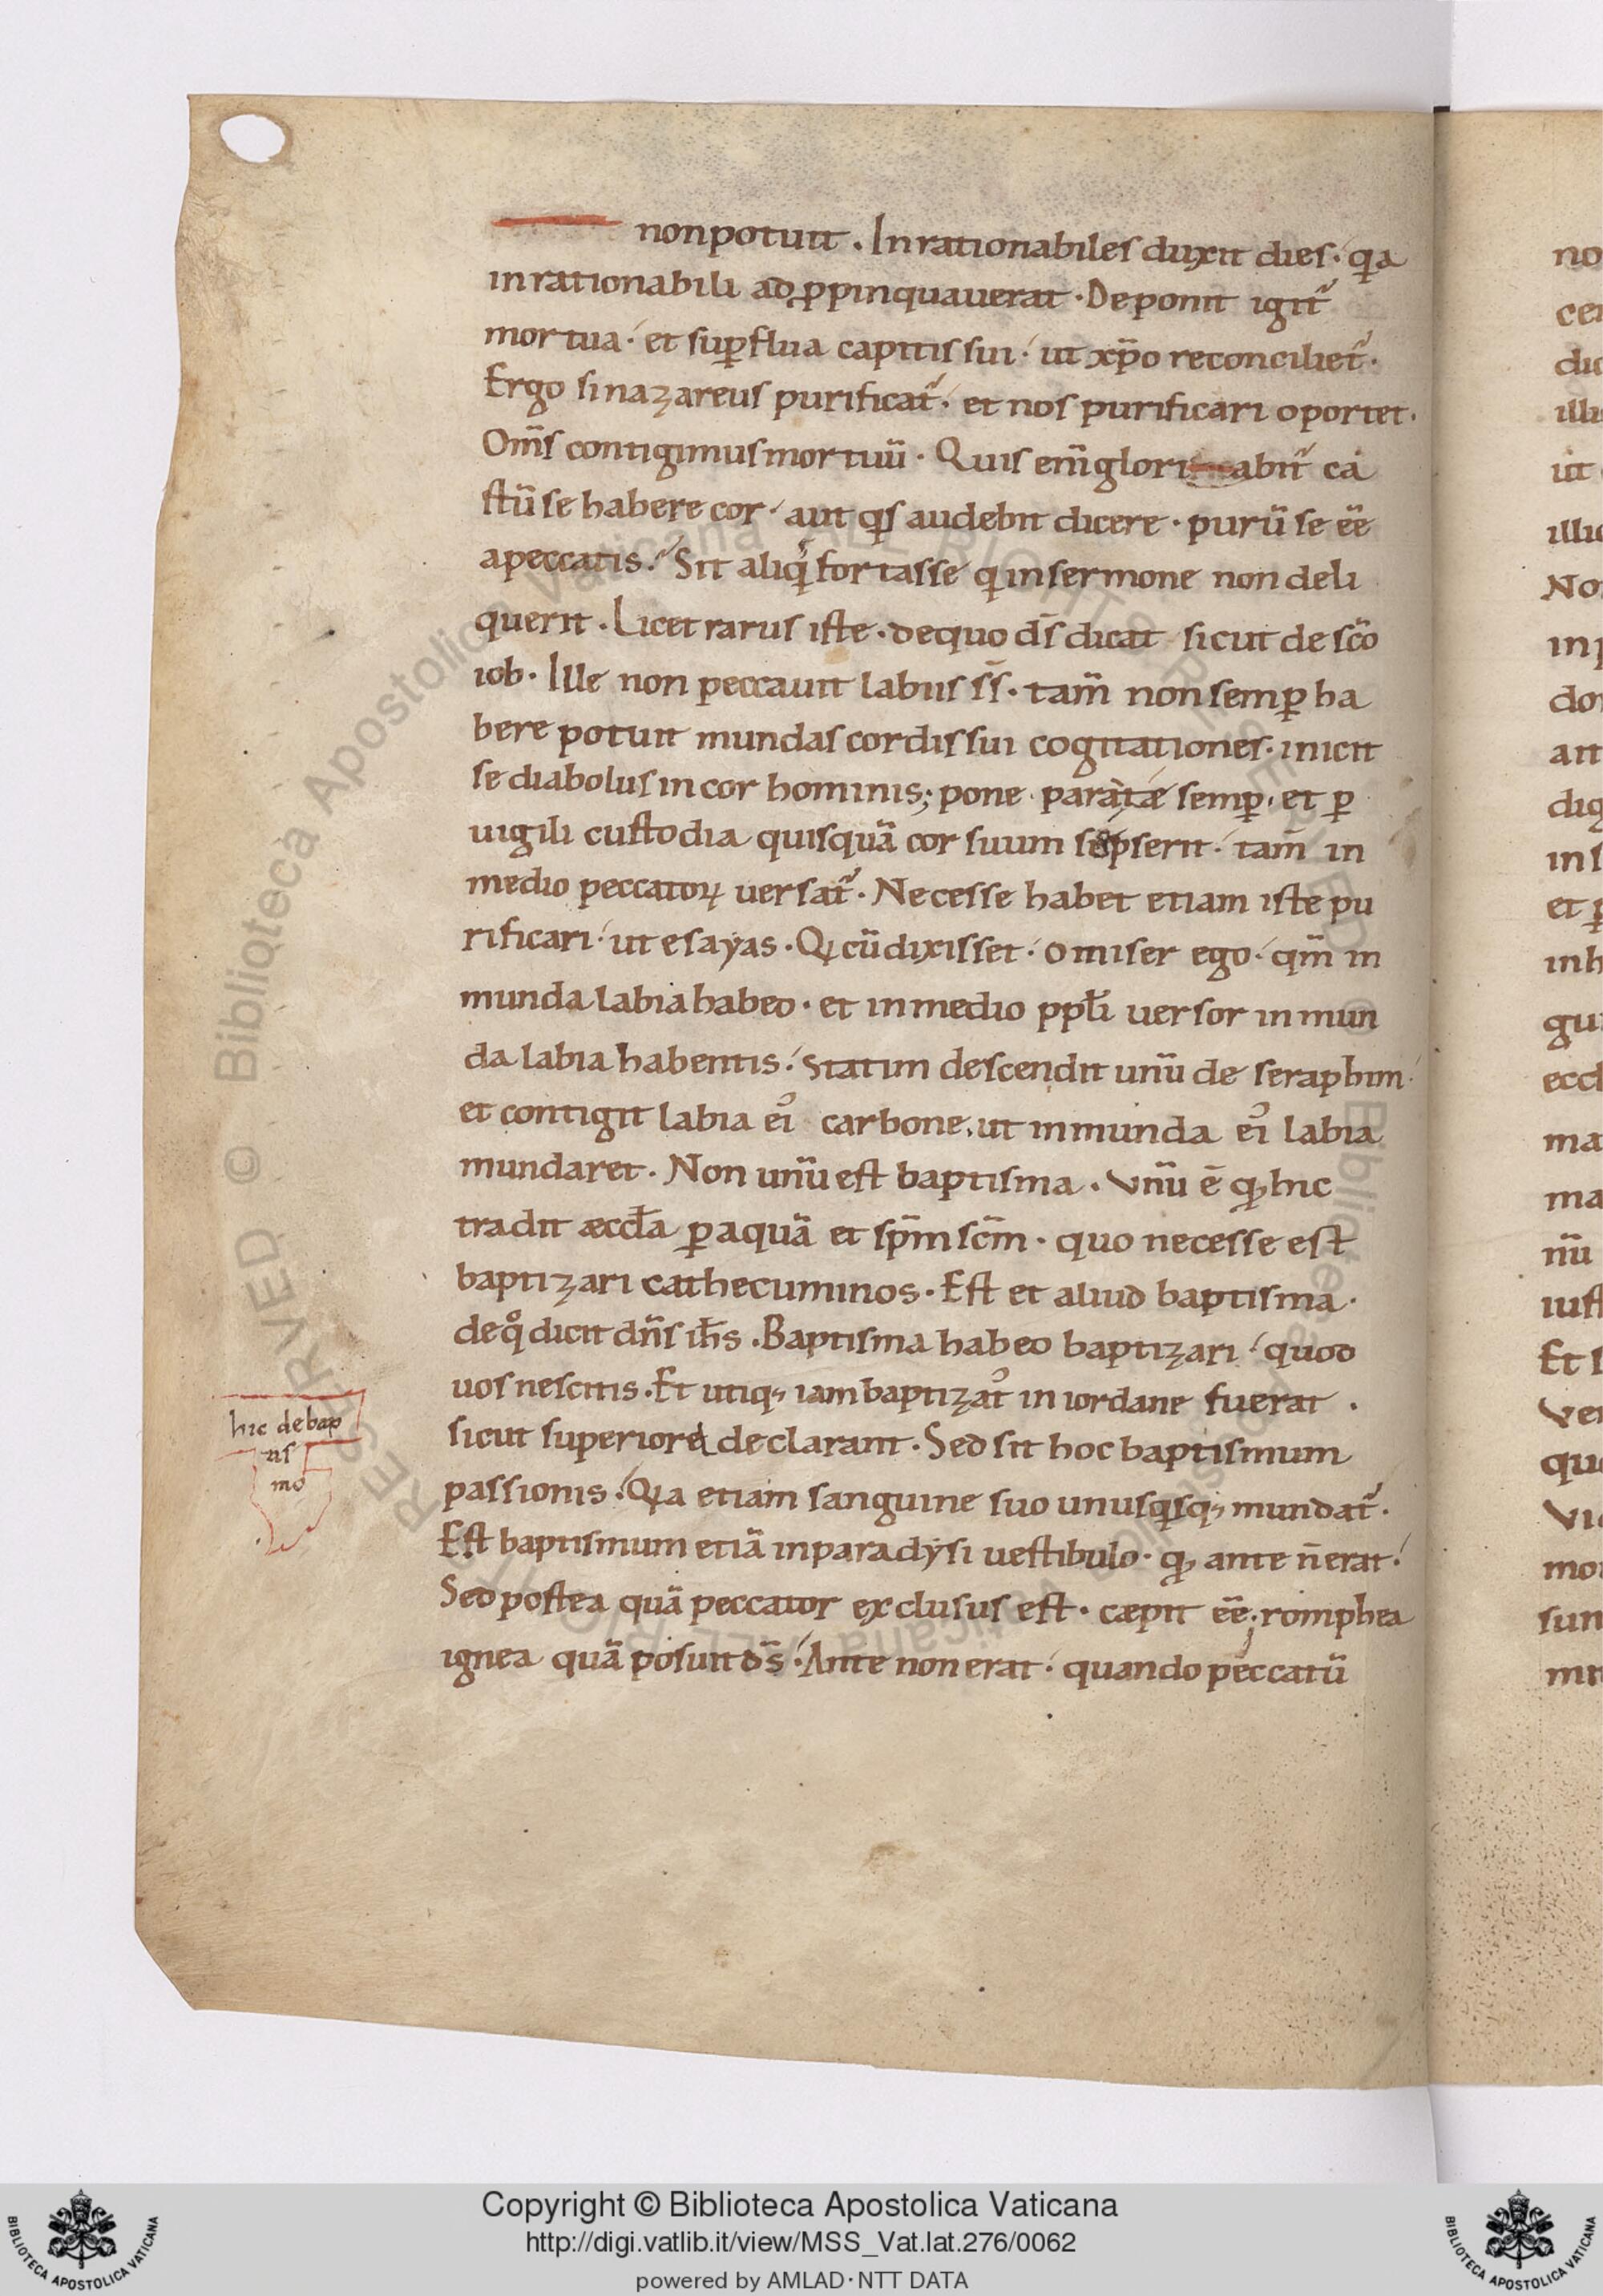 nonpotuit . Inrationabiles duxit dies · qa
inrationabili adppinquauerat · Deponit igit̃
mortua · et sup̱flua capitis sui · ut xp̃o reconciliet̃ ·
Ergo si nazareus purificat̃ · et nos purificari oportet ·
Om̃s contigimus mortuũ · Quis em̃ glori abit̃ ca
stũ se habere cor · aut qs audebit dicere · purũ se ẽe
apeccatis · Sit aliq fortasse q insermone non deli
querit . Licet rarus iste · dequo d̃s dicat sicut de sc̃o
iob · Ille non peccauit labiis s̃s · tam̃ non semp̱ ha
bere potuit mundas cordis sui cogitationes · inicit
se diabolus in cor hominis; pone paratæ semp̱ · et p̱
uigili custodia quisquã cor suum sepserit · tam̃ in
medio peccatoꝝ uersat̃ · Necesse habet etiam iste pu
rificari · ut esayas · Qi cũ dixisset · o miser ego · qm̃ in
munda labia habeo · et inmedio ppl̃i uersor inmun
da labia habentis · Statim descendit unũ de seraphim ·
et contigit labia ei᾽ carbone, ut inmunda ei᾽ labia
mundaret . Non unũ est baptisma . Vnũ ẽ qđ hic
tradit æccl̃a p̱ aquã et sp̃m sc̃m · quo necesse est
baptizari cathecuminos · Est et aliud baptisma ·
deqͦ dicit dñs ih̃s . Baptisma habeo baptizari · quod
uos nescitis . Et utiq; iam baptizat᾽ in iordane fuerat .
sicut superiora declarant · Sed sit hoc baptismum
passionis · Qia etiam sanguine suo unusqsq; mundat̃ ·
Est baptismum etiã inparadysi uestibulo · qđ ante ñ erat ·
Sed postea quã peccator exclusus est · cæpit ẽe; romphea
ignea quã posuit d̃s · Ante non erat · quando peccatũ
hic debap
tis
mo
no
cer
dic
illi
ut
illic
No
in p
dor
ait
dig
in s
et p
inh
gui
eccl
ma
ma
nũ
iust
Et s
Ver
que
Vi
mor
sun
mit
Copyright © Biblioteca Apostolica Vaticana
http://digi.vatlib.it/view/MSS_Vat.lat.276/0062
powered by AMLAD·NTT DATA
BIBLIOTECA APOSTOLICA VATICANA
BIBLIOTECA APOSTOLICA VATICANA